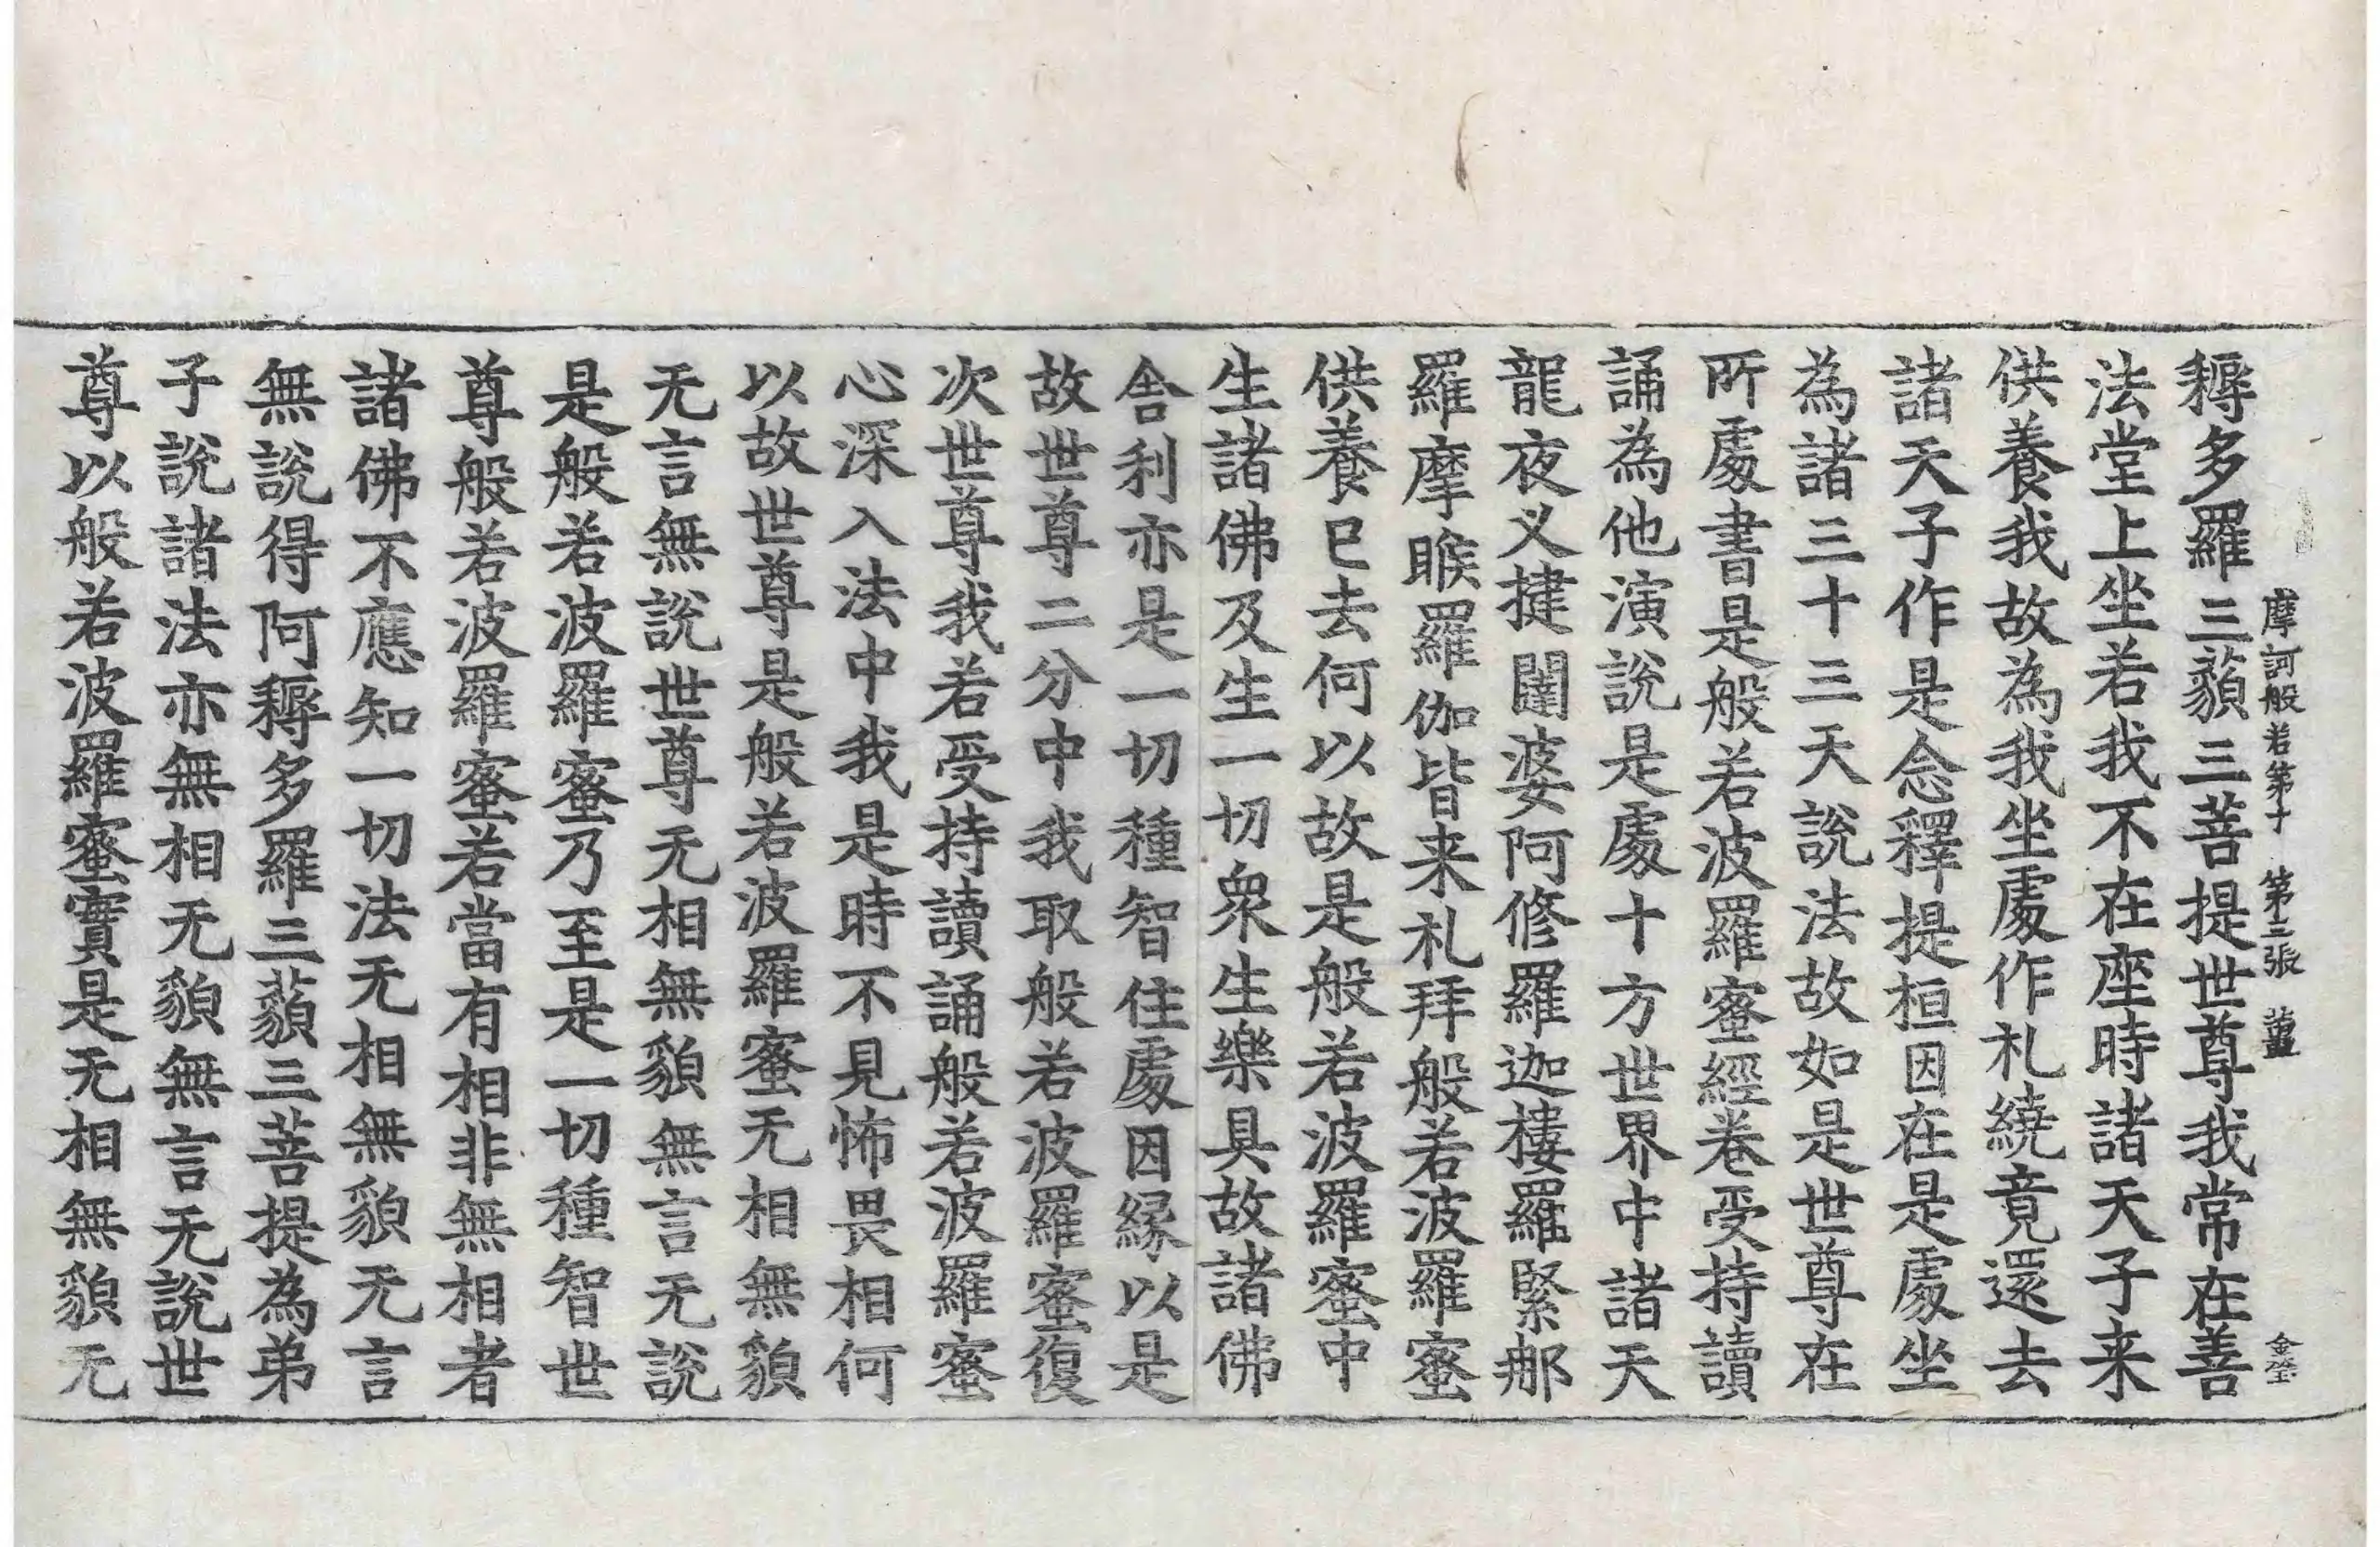 摩訶般若第十 第三張 薑
金瑩
耨多羅三藐三菩提世尊我常在善
法堂上坐若我不在座時諸天子来
供養我故為我坐處作礼繞竟還去
諸天子作是念釋提桓因在是處坐
為諸三十三天說法故如是世尊在
所處書是般若波羅蜜經卷受持讀
誦為他演說是處十方世界中諸天
龍夜叉揵闥婆阿修羅迦樓羅緊那
羅摩睺羅伽皆来礼拜般若波羅蜜
供養已去何以故是般若波羅蜜中
生諸佛及生一切衆生樂具故諸佛
舎利亦是一切種智住處因縁以是
故世尊二分中我取般若波羅蜜復
次世尊我若受持讀誦般若波羅蜜
心深入法中我是時不見怖畏相何
以故世尊是般若波羅蜜无相無貌
无言無說世尊无相無貌無言无說
是般若波羅蜜乃至是一切種智世
尊般若波羅蜜若當有相非無相者
諸佛不應知一切法无相無貌无言
無說得阿耨多羅三藐三菩提為弟
子說諸法亦無相无貌無言无說世
尊以般若波羅蜜實是无相無貌无